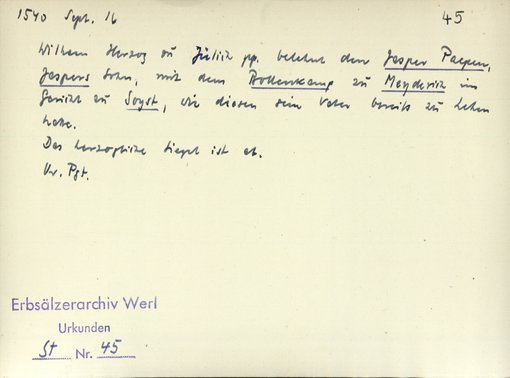 1540 Sept. 16
45
Wilhem Herzog zu Jülich pp. belehnt den Jasper Papen,
Jaspers Sohn, mit dem Bottenkamp zu Meyderich im
Gericht zu Soyst, wie diesen sein Vater bereits zu Lehen
hatte.
Das herzogliche Siegel ist ab.
Or. Pgt.
Erbsälzerarchiv Werl
Urkunden
St Nr. 45